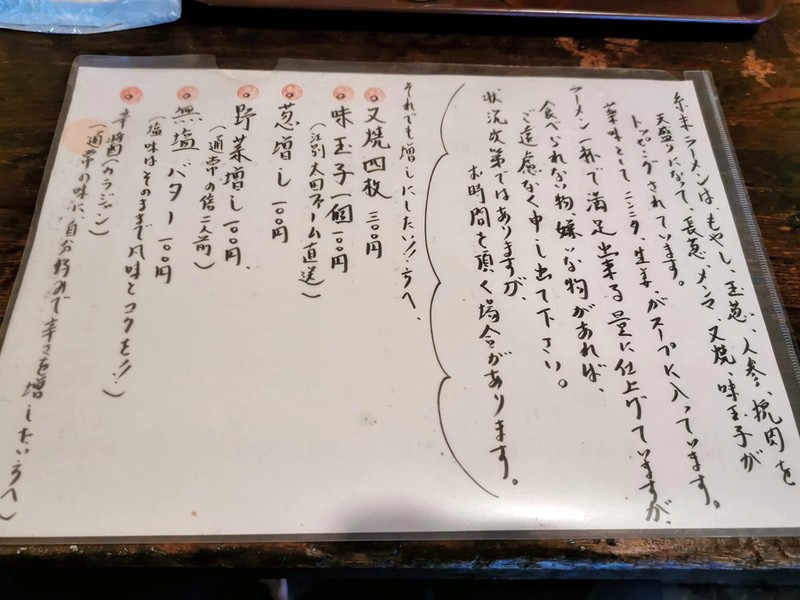 糸末ラーメンは、もやし、玉葱、人参、挽肉を
天盛りになって、長葱、メンマ、叉焼、味玉子が
トッピングされています。
薬味として ニンニク、生姜、がスープに入っています。
ラーメン一杯で満足出来る量に仕上げていますが、
食べられない物、嫌いな物があれば、
ご遠慮なく申し出て下さい。
状況次第ではありますが、
お時間を頂く場合があります。
それでも増しにしたい!!方へ、
叉焼四枚 三〇〇円
味玉子一個 一〇〇円
(江別 太田ファーム直送)
葱増し 一〇〇円
野菜増し 一〇〇円、
(通常の倍 二人前)
無塩バター 一〇〇円
(塩味はそのままで風味とコクを!!)
辛醤(カラジャン)
(通常の味に、自分好みで辛さを増したい方へ)